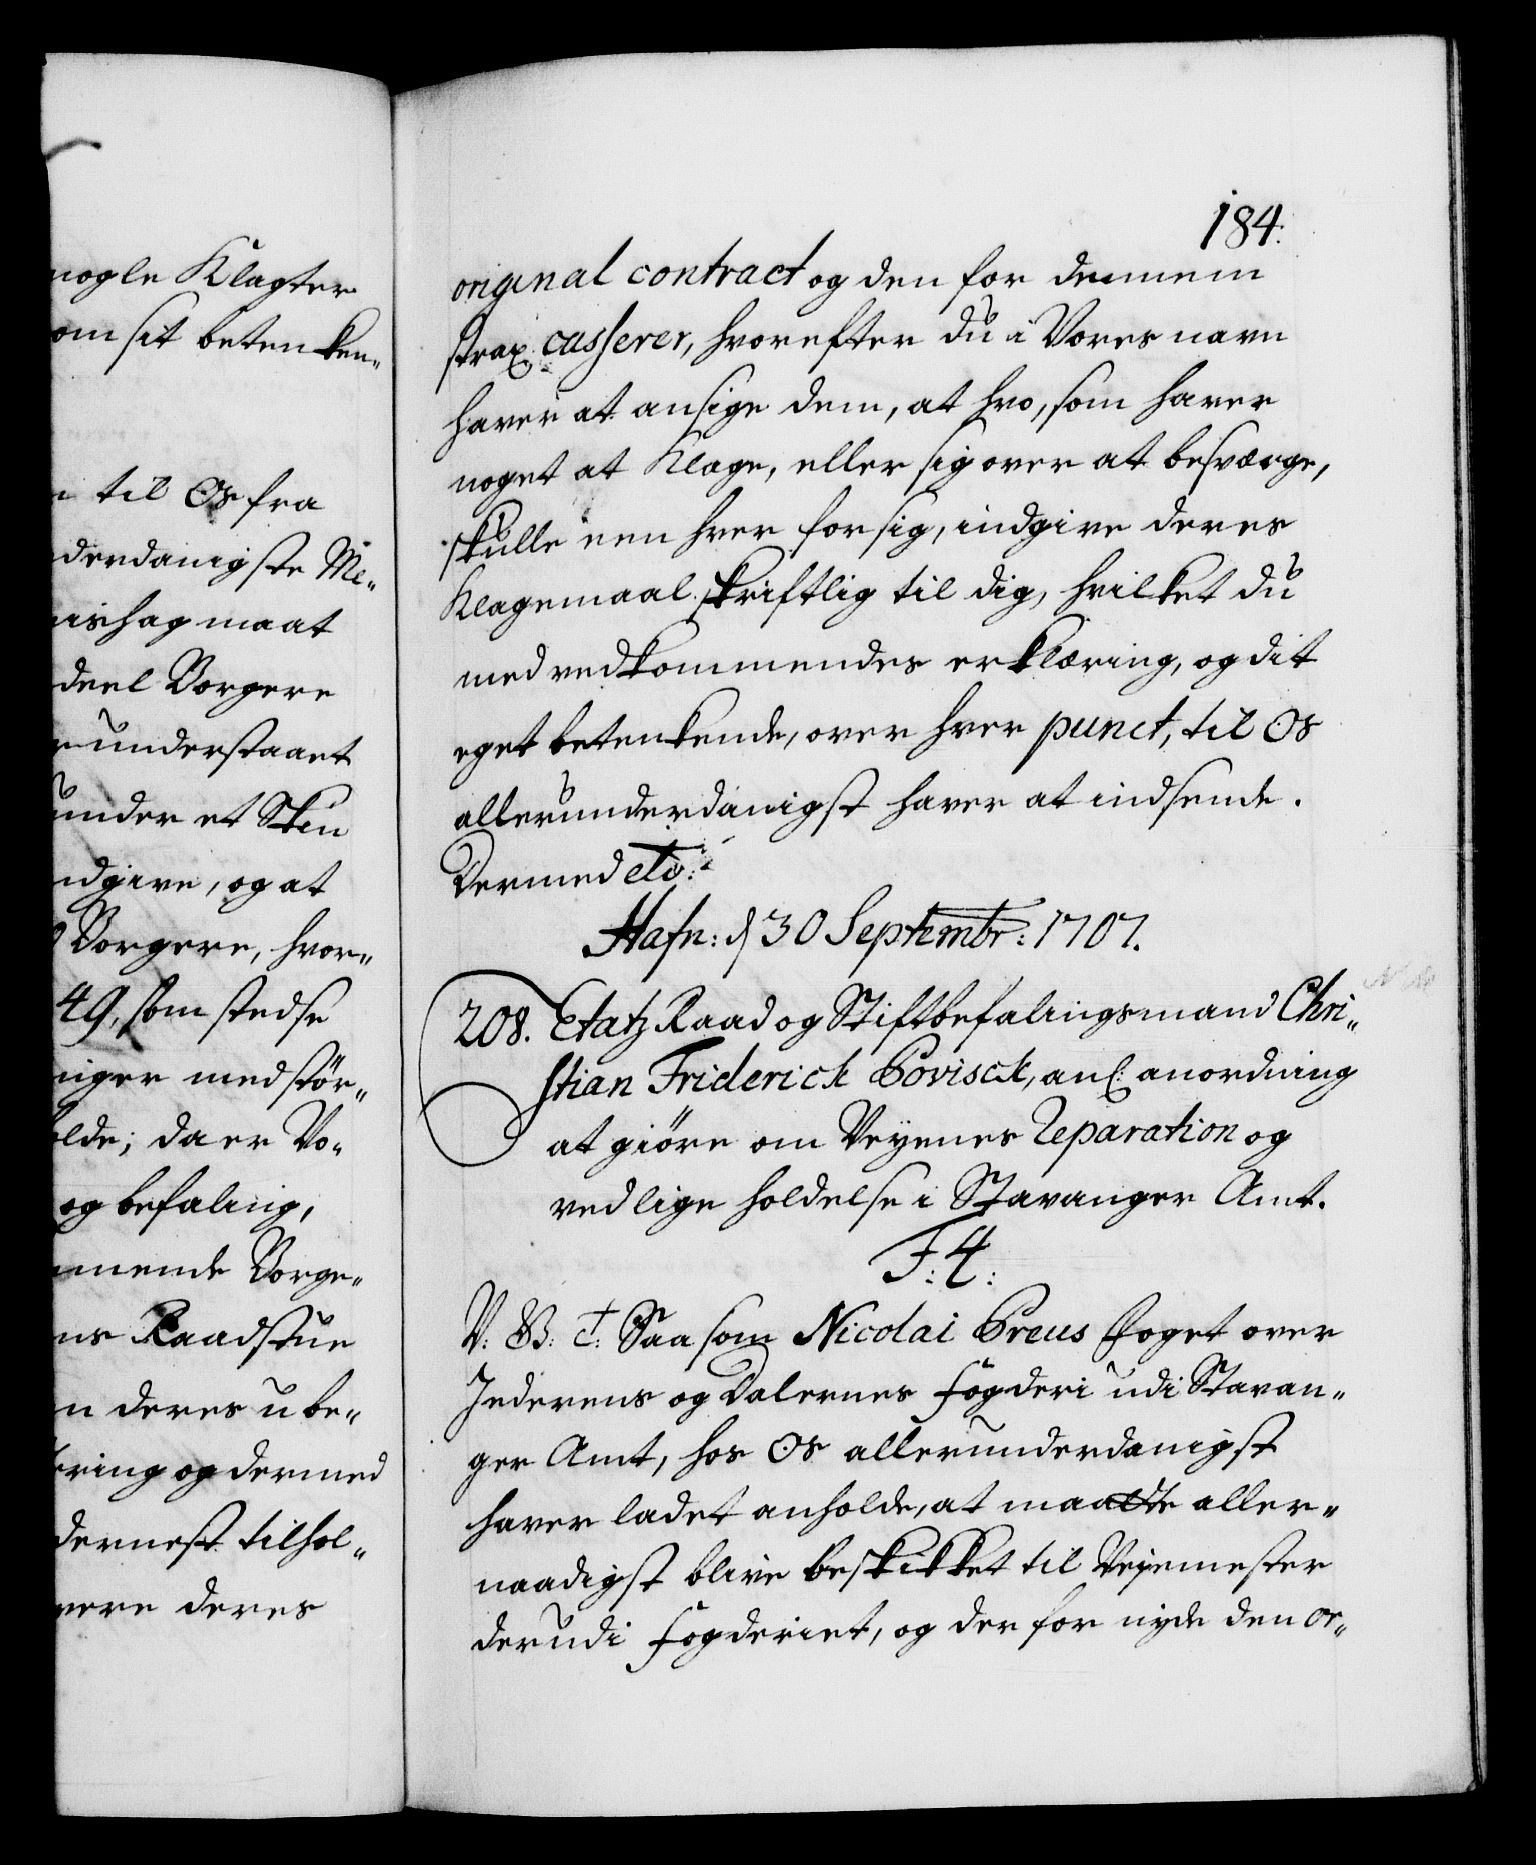 nogle Klagter
om sit betenken„
til Os fra
derdanigste Me„
mishag maat
deel Borgere
understaaet
under et Skin
ndgive, og at
Borgere, hvor„
49, som stedse
niger med stør„
olde; da er Vo„
og befaling,
mmende Borge„
ns Raadstue
n deres u be„
ring og dermed
dernest tilhol„
vere deres
184.
original contract og den for dennem
strax casserer, hvorefter du i Vores navn
haver at ansige dem, at hvo, som haver
noget at Klage, eller sig over at besværge,
skulle een hver for sig, indgive deres
Klagemaal skriftlig til dig, hvilket du
med vedkommendes erklæring, og dit
eget betenkende, over hver punct, til Os
allerunderdanigst haver at indsende.
Dermed etc:
Hafn: d 30 Septembr: 1707.
208. Etatz Raad og Stiftbefalingsmand Chri„
stian Friderick Povisck, anl: anordning
at giøre om Veyenes Reparation og
vedlige holdelse i Stavanger Amt.
F: 4:
V: G: T: Saa som Nicolai Preus foget over
Jederens og Dalernes fogderi udi Stavan„
ger Amt, hos Os allerunderdanigst
haver ladet anholde, at maatte aller„
naadigst blive beskikket til Vejemester
der udi fogderiet, og der for nyde den or„